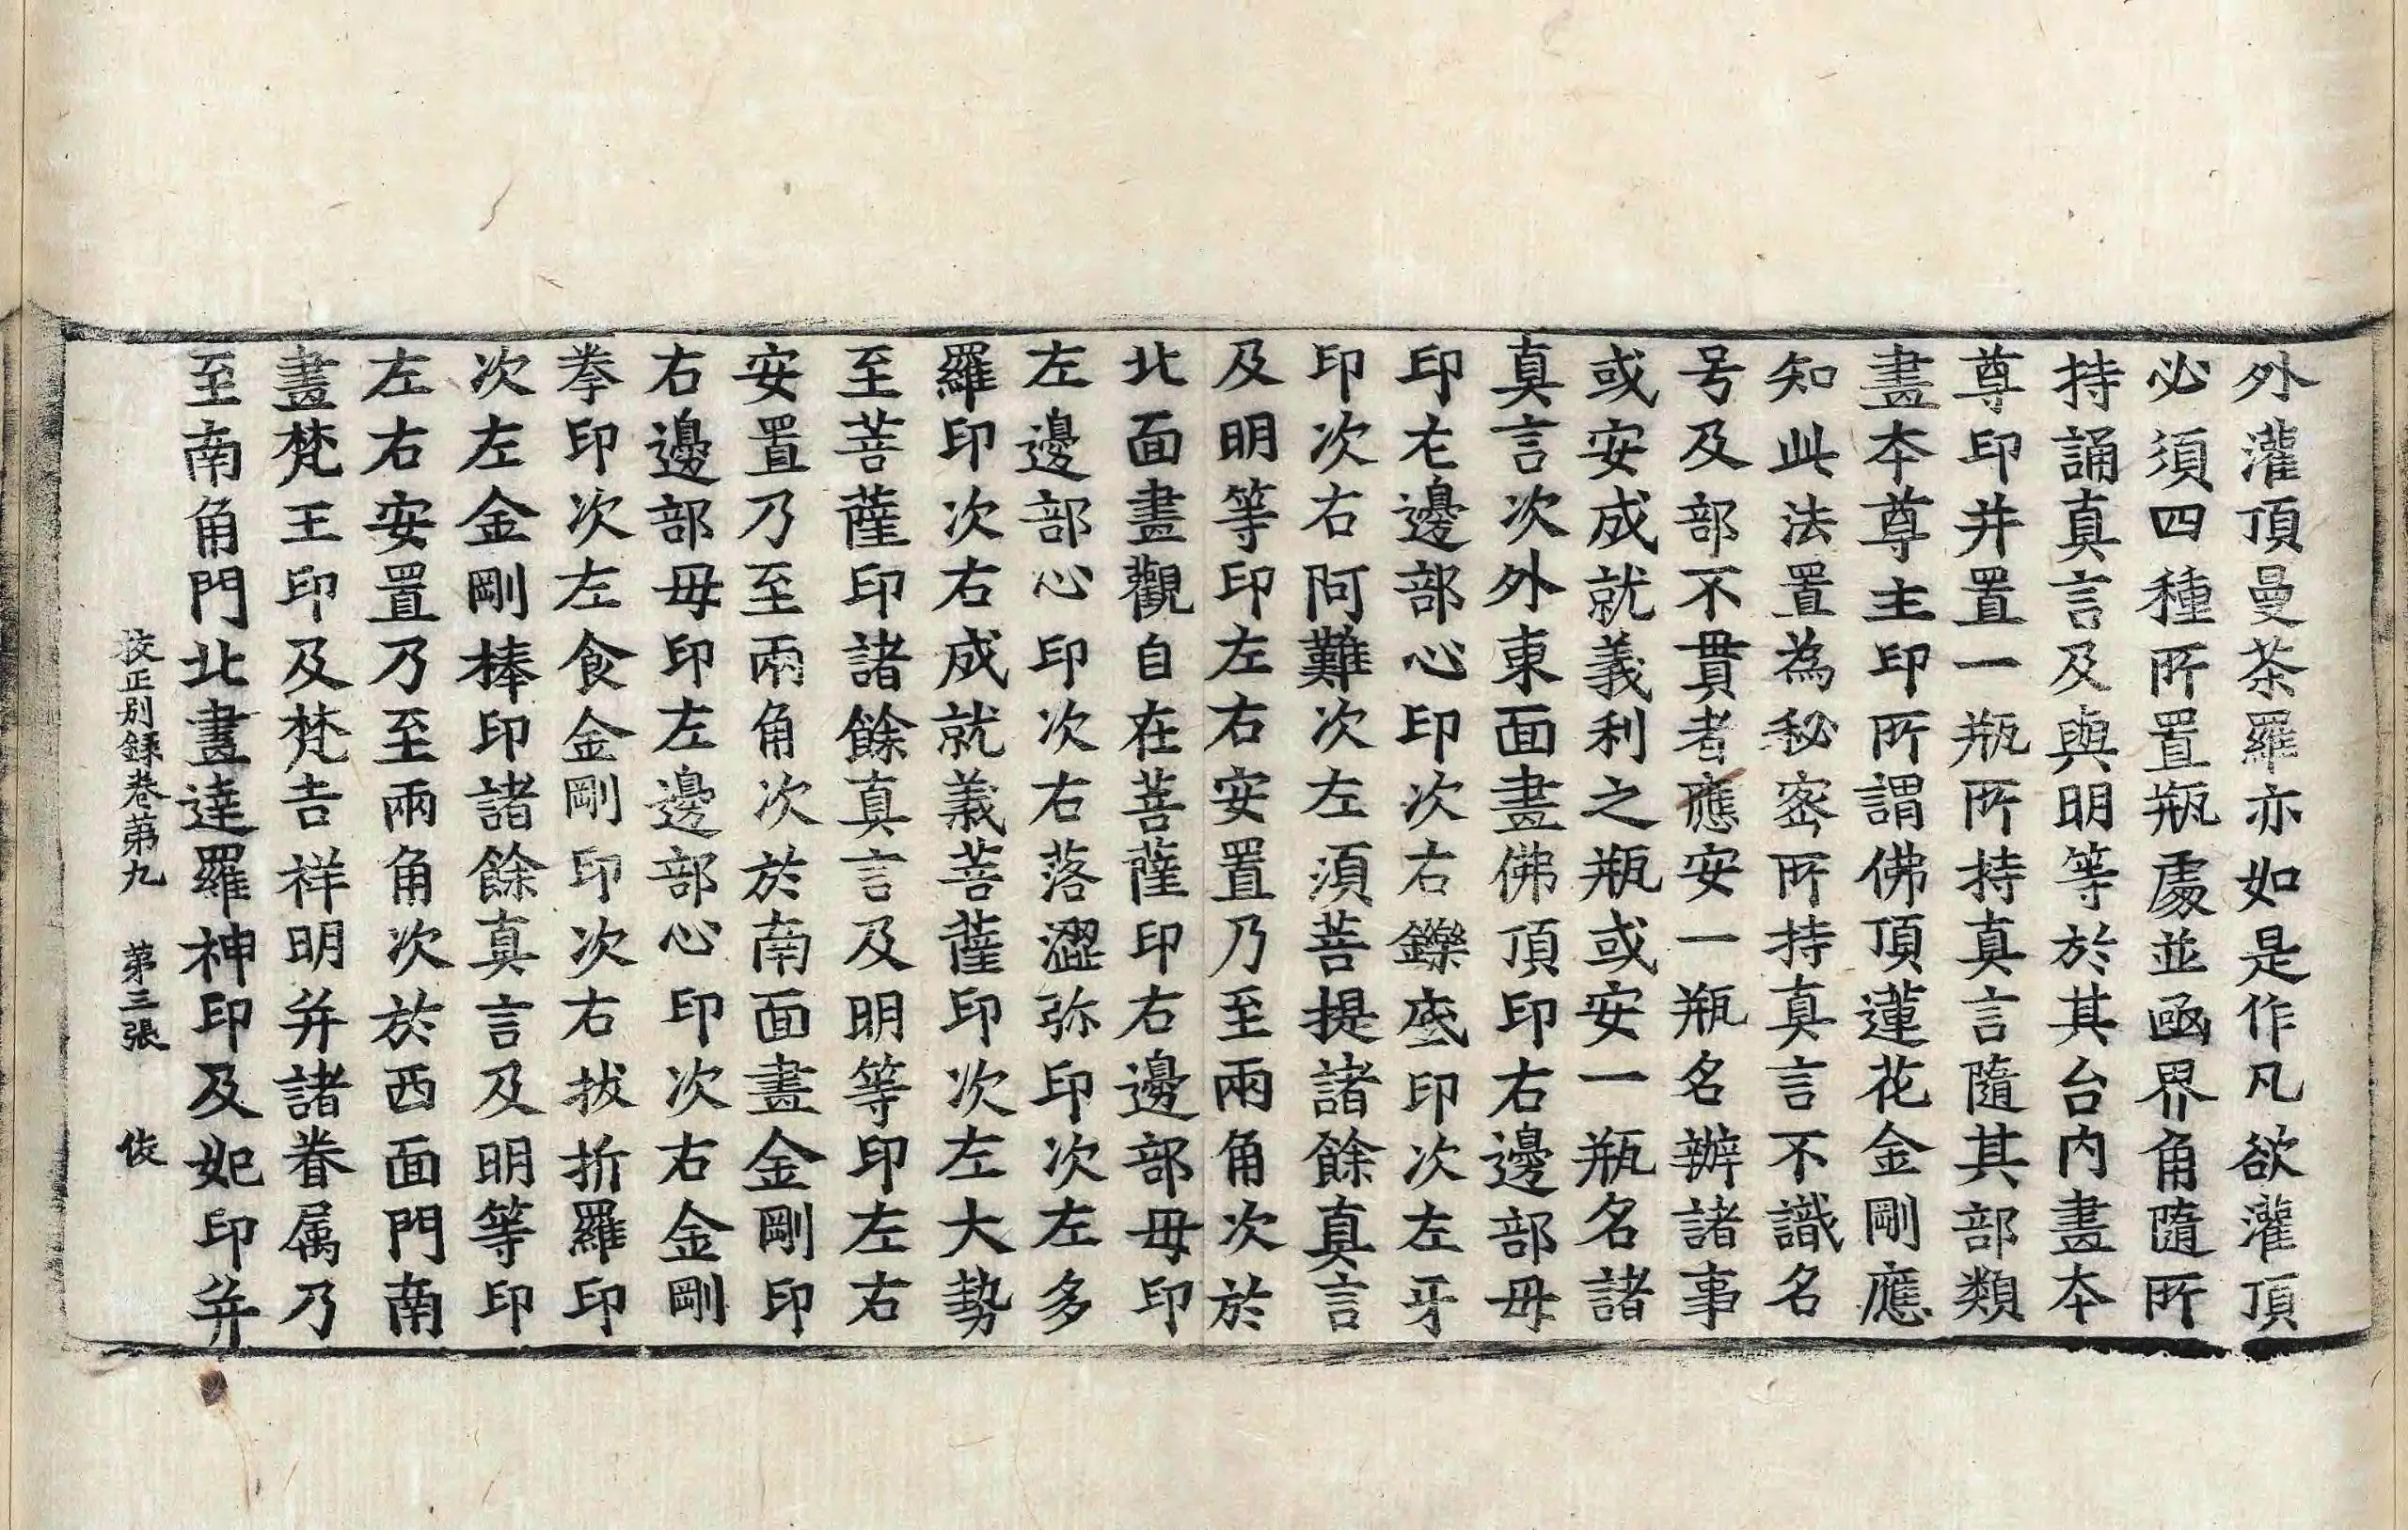 外灌頂曼茶羅亦如是作凡欲灌頂
必須四種所置瓶處並凾界角隨所
持誦真言及與明等於其台内畫本
尊印并置一瓶所持真言隨其部類
畫本尊主印所謂佛頂蓮花金剛應
知此法置為秘密所持真言不識名
号及部不貫者應安一瓶名辦諸事
或安成就義利之瓶或安一瓶名諸
真言次外東面畫佛頂印右邊部毋
印左邊部心印次右鑠底印次左牙
印次右阿難次左須菩提諸餘真言
及明等印左右安置乃至兩角次於
北面畫觀自在菩薩印右邊部毋印
左邊部心印次右落澀弥印次左多
羅印次右成就義菩薩印次左大勢
至菩薩印諸餘真言及明等印左右
安置乃至兩角次於南面畫金剛印
右邊部毋印左邊部心印次右金剛
拳印次左食金剛印次右拔折羅印
次左金剛棒印諸餘真言及明等印
左右安置乃至兩角次於西面門南
畫梵王印及梵吉祥明并諸眷属乃
至南角門北畫達羅神印及妃印并
校正別錄卷第九　第三張　伎